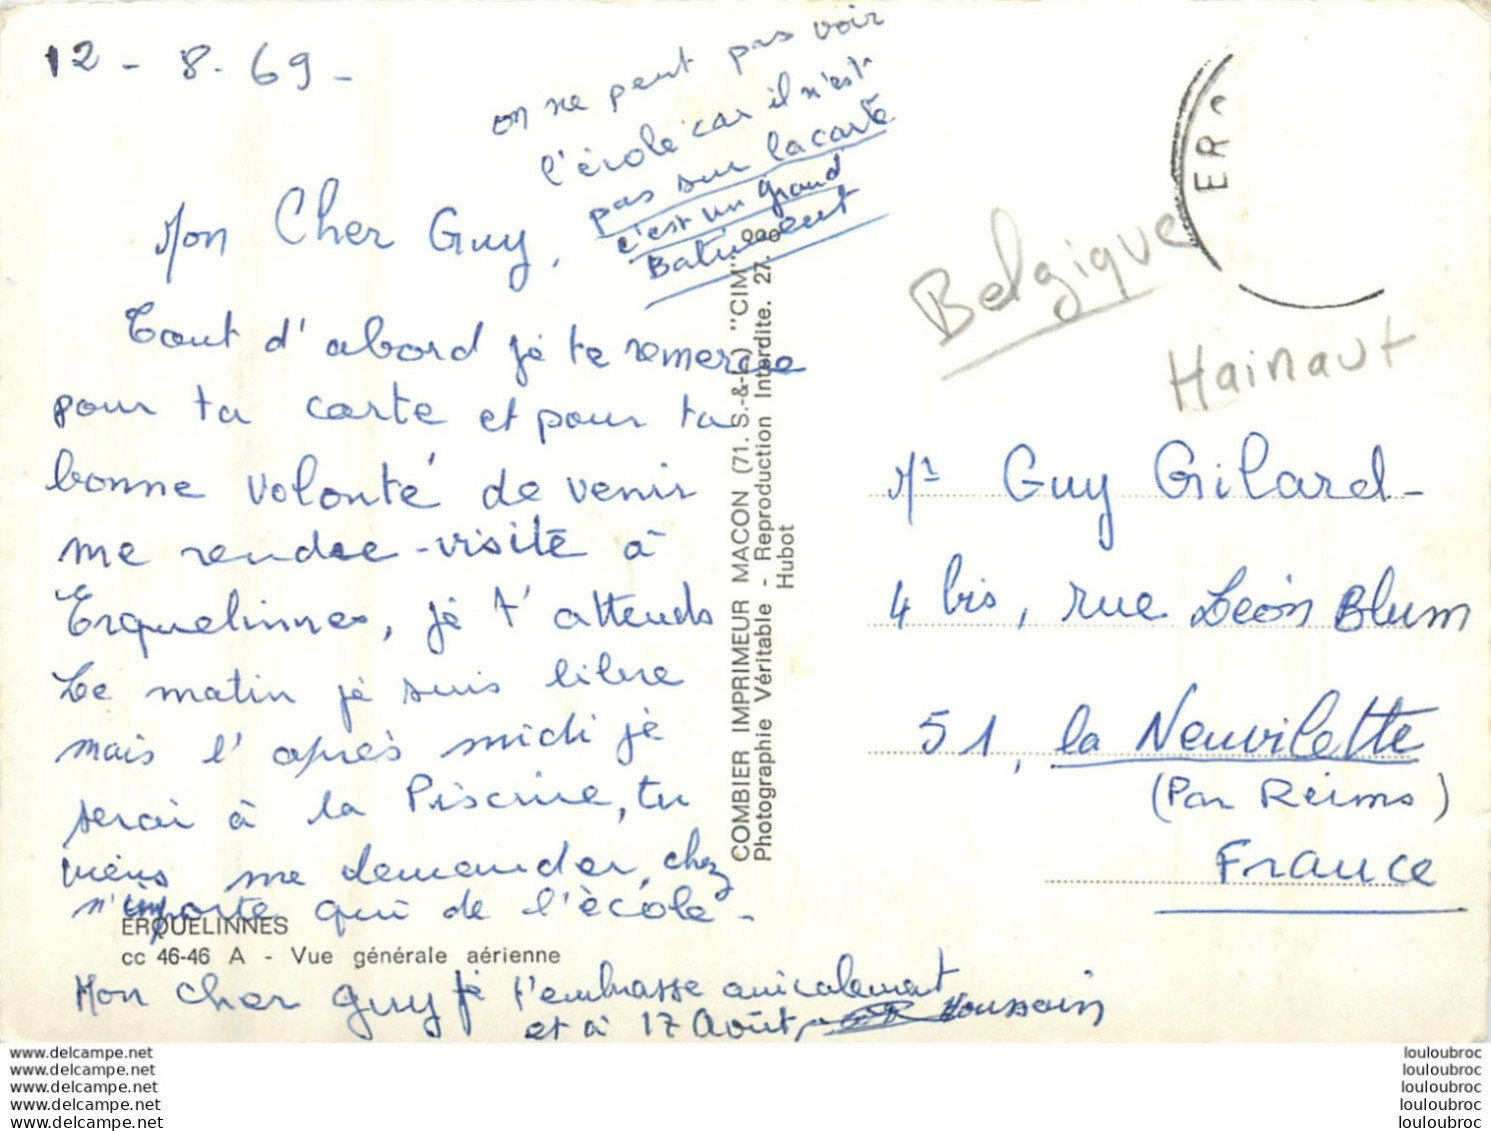 12 - 8 - 69 -
on ne peut pas voir
l'école car il n'est
pas sur la carte
c'est un grand
Batiment
Mon Cher Guy,
Tout d'abord je te remercie
pour ta carte et pour ta
bonne volonté de venir
me rendre-visite à
Erquelinnes, je t'attends
Le matin je suis libre
mais l'après midi je
serai à la Piscine, tu
viens me demander chez
n'importe qui de l'école -
ERQUELINNES
cc 46-46 A - Vue générale aérienne
Mon cher guy je t'embrasse amicalement
et à 17 Août,
Houssain
COMBIER IMPRIMEUR MACON (71. S.-&-L.) "CIM"
Photographie Véritable - Reproduction Interdite. 27.
Hubot
ERQ
Belgique
Hainaut
Mr Guy Gilard -
4 bis, rue Léon Blum
51, la Neuvilette
(Par Reims)
France
www.delcampe.net
www.delcampe.net
www.delcampe.net
www.delcampe.net
www.delcampe.net
louloubroc
louloubroc
louloubroc
louloubroc
louloubroc